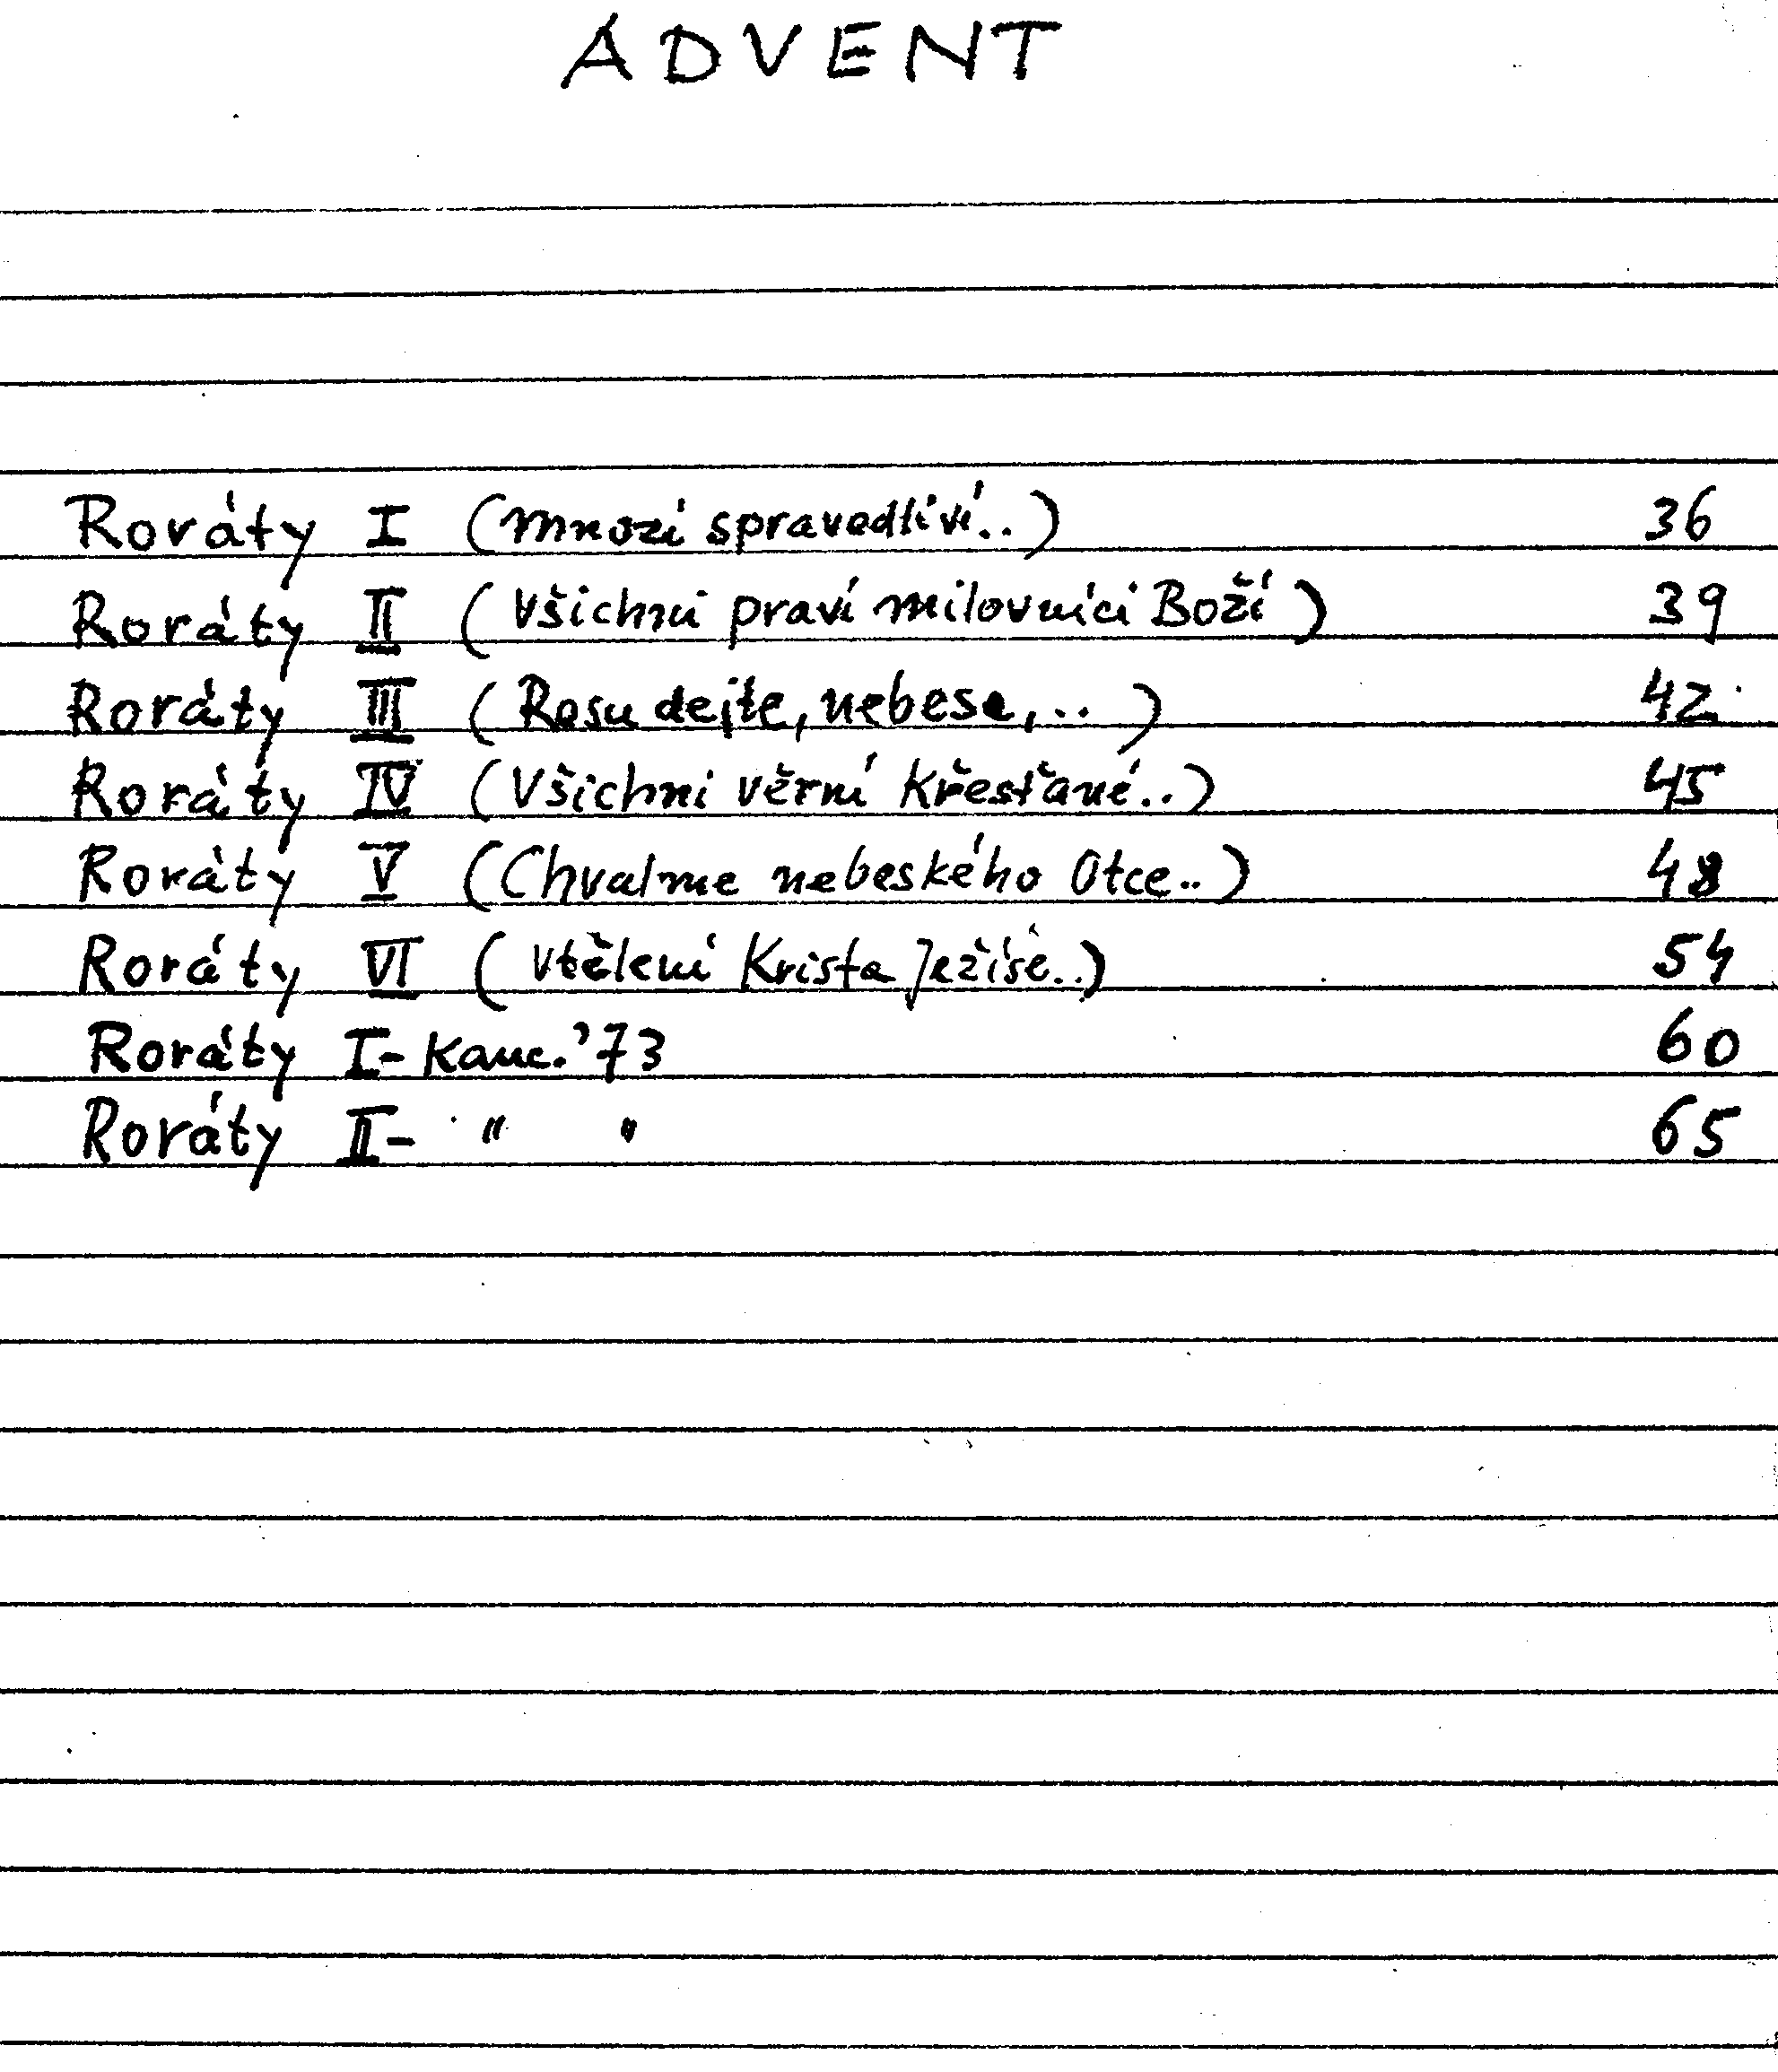 ADVENT
Roráty I (Mnozí spravedliví..) 36
Roráty II (Všichni praví milovníci Boží) 39
Roráty III (Rosu dejte, nebesa,..) 42
Roráty IV (Všichni věrní křesťané..) 45
Roráty V (Chvalme nebeského Otce..) 48
Roráty VI (Vtělení Krista Ježíše..) 54
Roráty I - Kanc. '73 60
Roráty II - " " 65